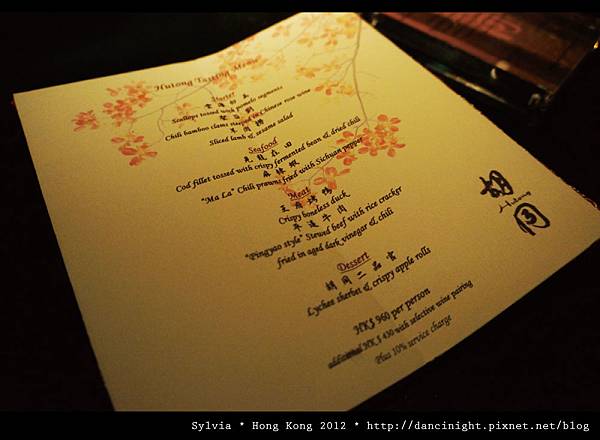 Hutong Tasting Menu
Starter
Scallops tossed with pomelo segments
Chili bamboo clams steeped in Chinese rose wine
Sliced lamb & sesame salad
Seafood
Cod fillet tossed with crispy fermented bean & dried chili
麻辣蝦
"Ma La" Chili prawns fried with Sichuan pepper
Meat
Crispy boneless duck
牛肉
"Pingyao style" Stewed beef with rice cracker
fried in aged dark vinegar & chili
Dessert
胡同二品
Lychee sherbet & crispy apple rolls
HK$ 960 per person
additional HK$ 430 with selective wine pairing
Plus 10% service charge
胡同
Hutong
Sylvia * Hong Kong 2012 * http://dancinight.pixnet.net/blog